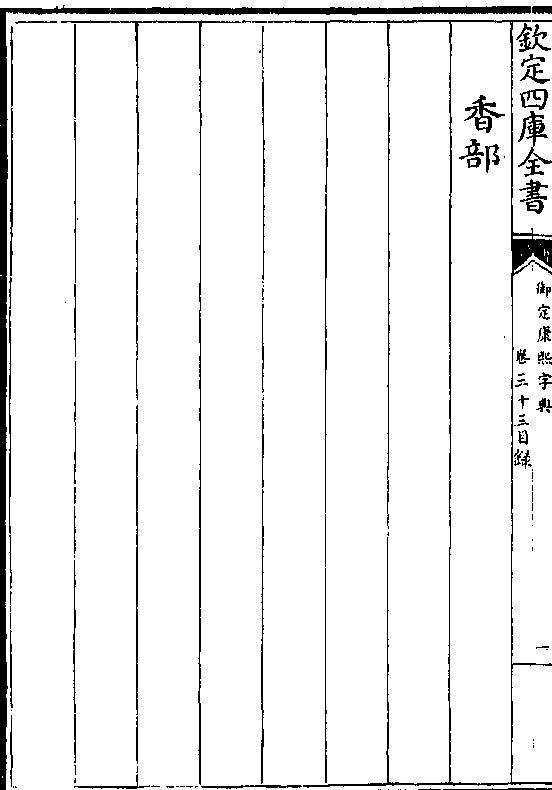 欽定四庫全書
御定康熙字典
卷三十三目録
一
香部